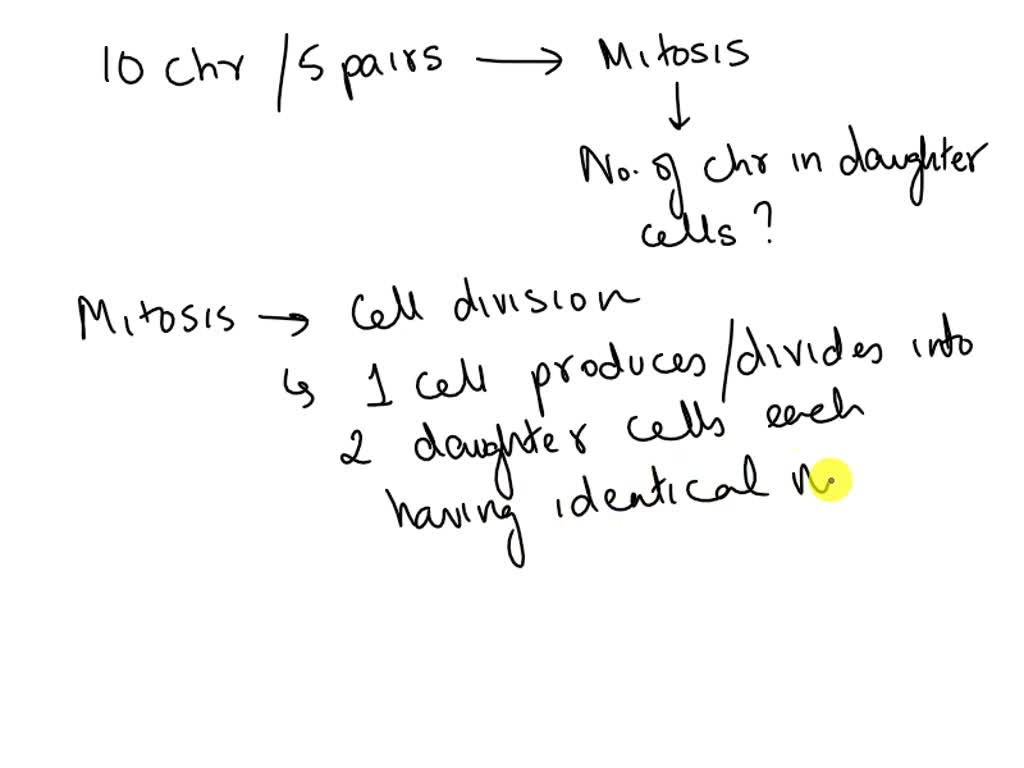 10 chr / 5 pairs → Mitosis
↓
No. of chr in daughter
cells ?
Mitosis → Cell division
↳ 1 cell produces/divides into
2 daughter cells each
having identical n